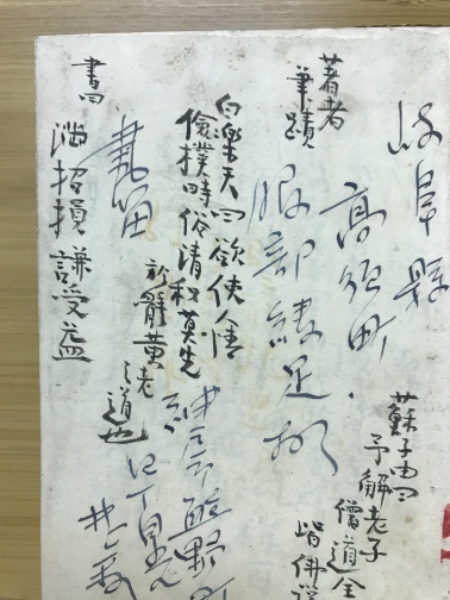 岐阜縣
高須町
著者
筆蹟
服部綾足
蘇子由曰
予解老子
僧道全
皆佛説
白樂天曰欲使人情
儉樸時俗清和莫先
於體黄老
之道也
神戸市熊野町
書曰
滿招損謙受益